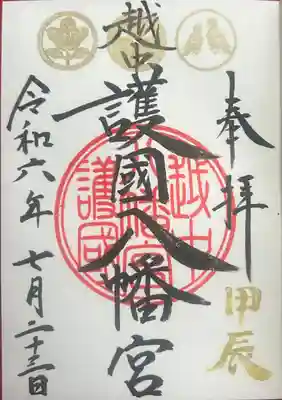 奉拝
甲辰
越中
護國八幡宮
令和六年七月二十三日
越中
護國